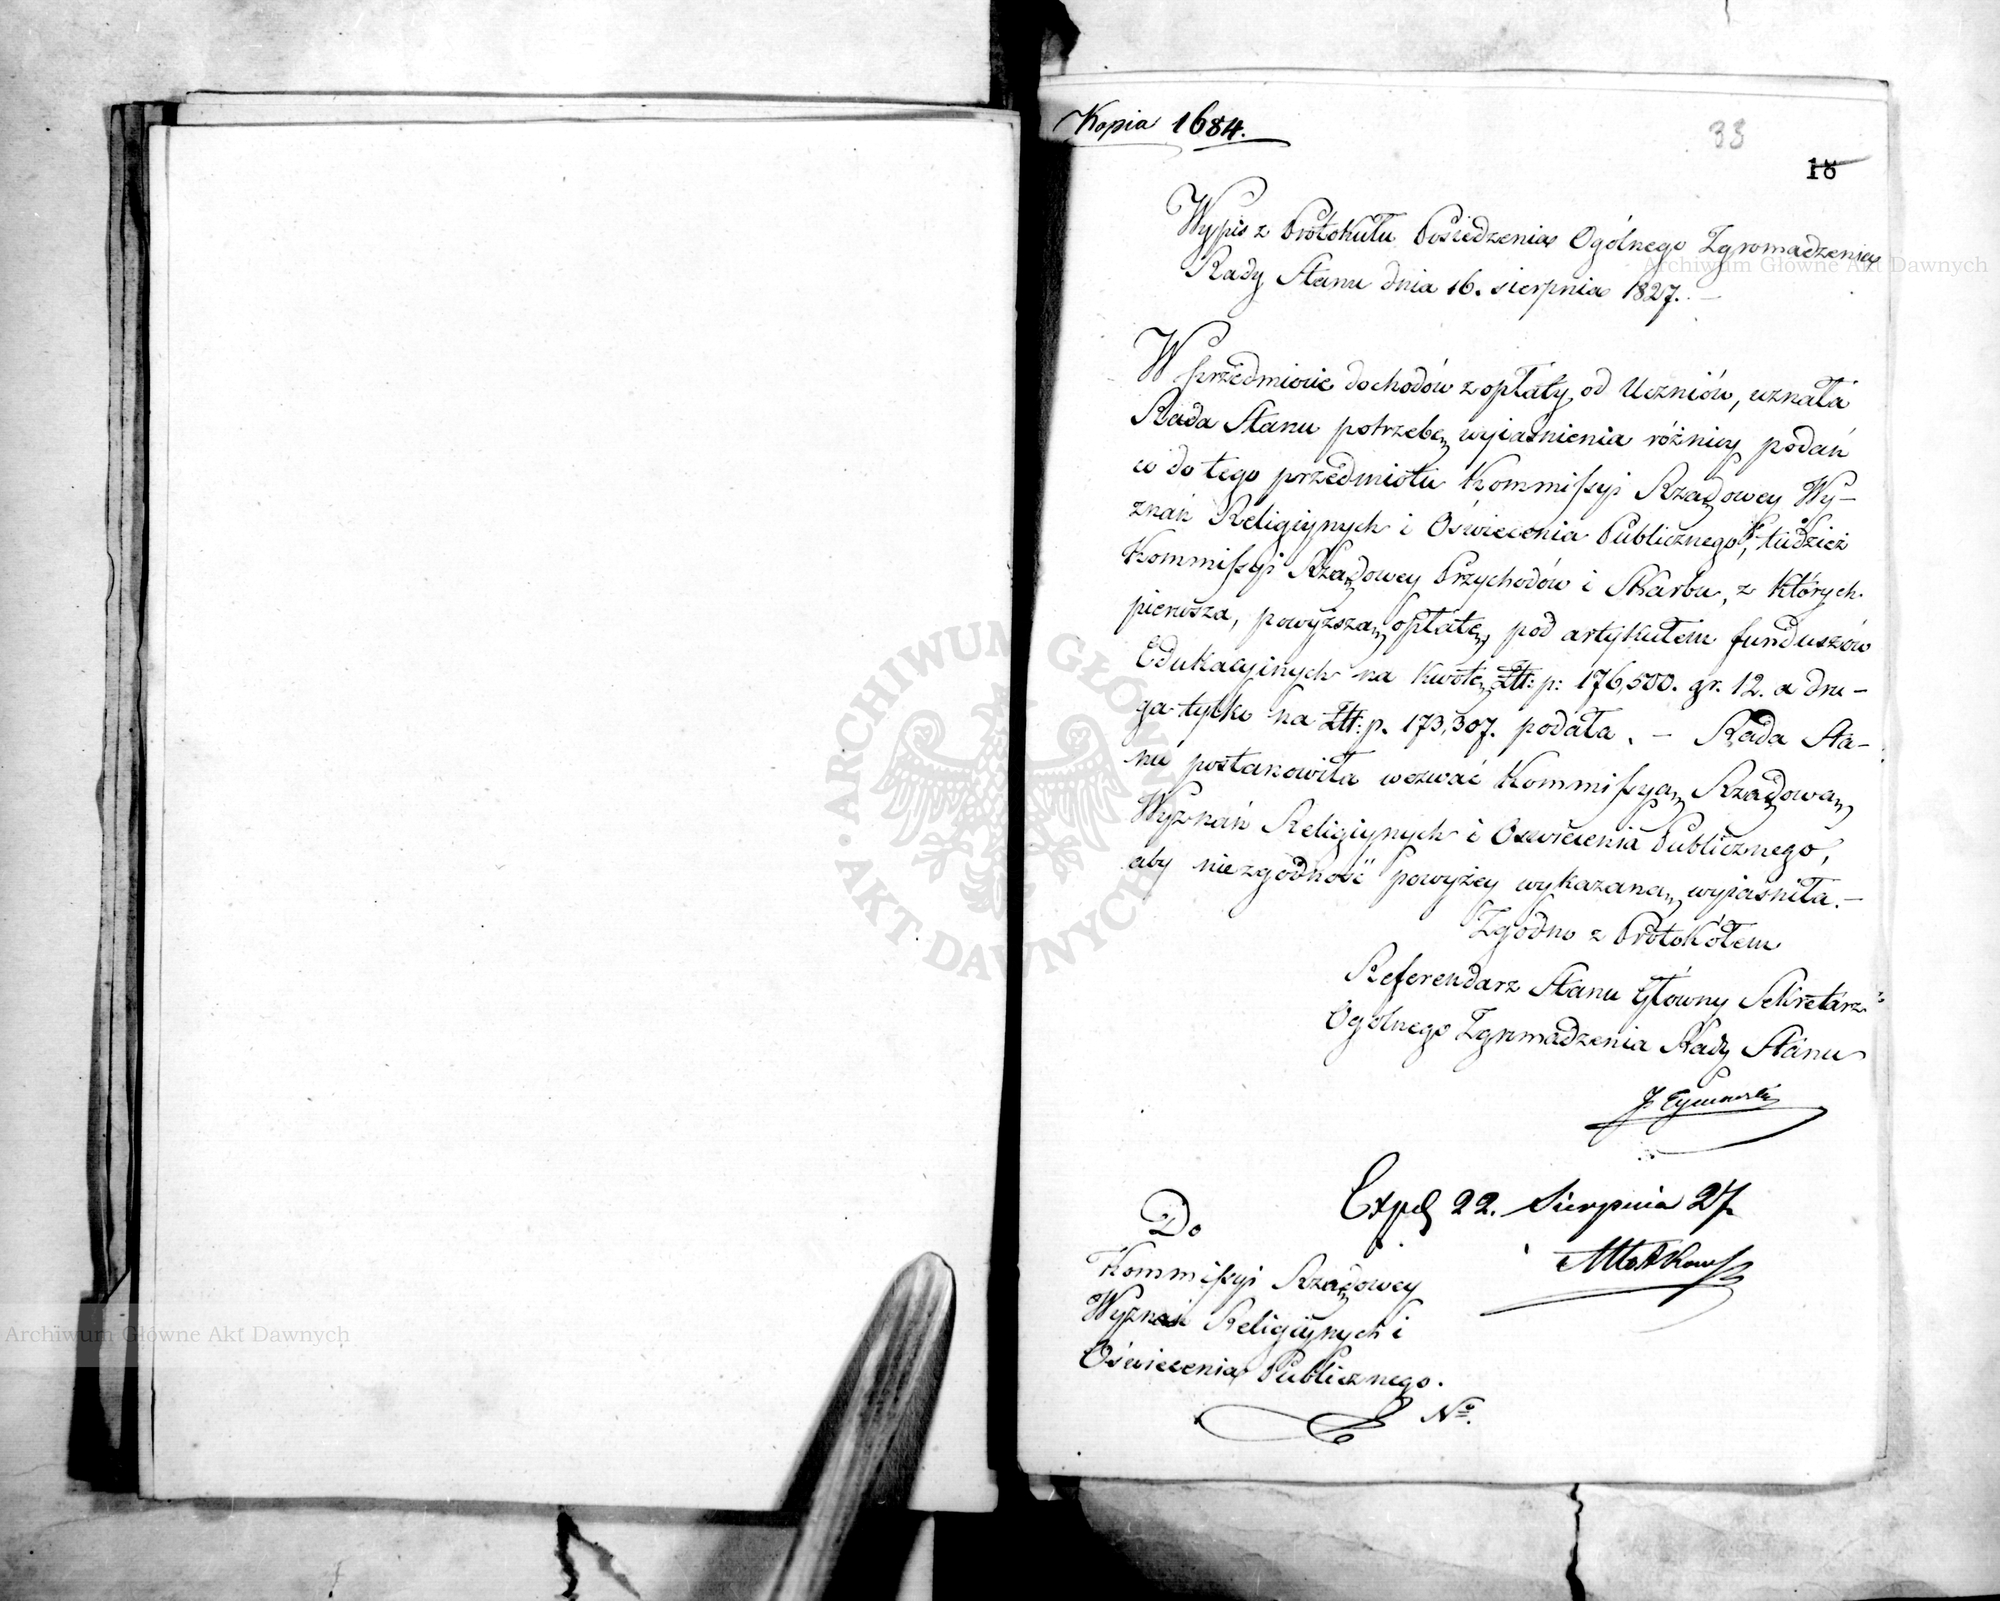 Kopia 1684.
33
18
Wypis z Protokułu Posiedzenia Ogólnego Zgromadzenia
Rady Stanu dnia 16. sierpnia 1827. —
W przedmiocie dochodów z opłaty od Uczniów, uznała
Rada Stanu potrzebę wyiaśnienia różnicy podań
co do tego przedmiotu Kommissyi Rządowey Wy-
znań Religiynych i Oświecenia Publicznego, tudzież
Kommissyi Rządowey Przychodów i Skarbu, z których
pierwsza, powyższą opłatę, pod artykułem funduszów
Edukacyinych na kwotę Złt: p: 176,500. gr. 12. a dru-
ga tylko na Złt: p. 173,307. podała. — Rada Sta-
nu postanowiła wezwać Kommissyą Rządową
Wyznań Religiynych i Oświecenia Publicznego,
aby niezgodność powyżey wykazaną wyiaśniła. —
Zgodno z Protokółem
Referendarz Stanu Główny Sekretarz
Ogólnego Zgromadzenia Rady Stanu
J. Tymowski
Exped 22. Sierpnia 27.
Do
Kommissyi Rządowey
Wyznań Religiynych i
Oświecenia Publicznego.
No.
Archiwum Główne Akt Dawnych
Archiwum Główne Akt Dawnych
ARCHIWUM GŁÓWNE AKT DAWNYCH